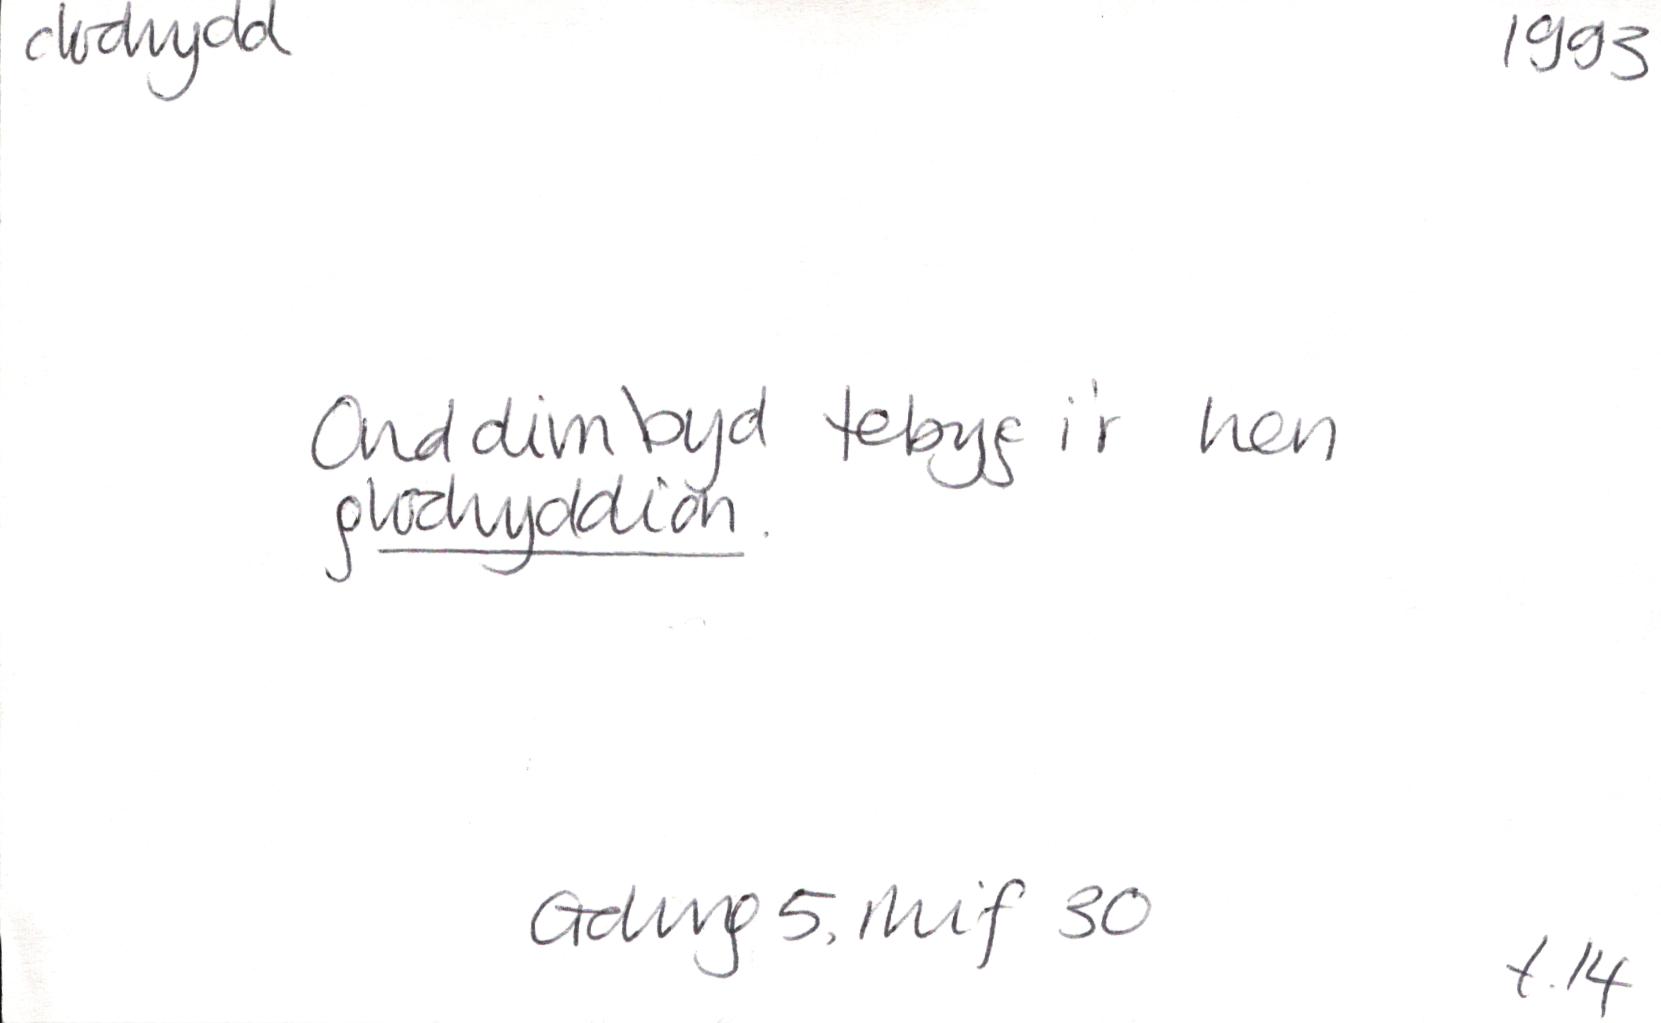 clodrydd 1993
Ond dim byd tebyg i'r hen
glodryddion.
5, rhif 30
t.14